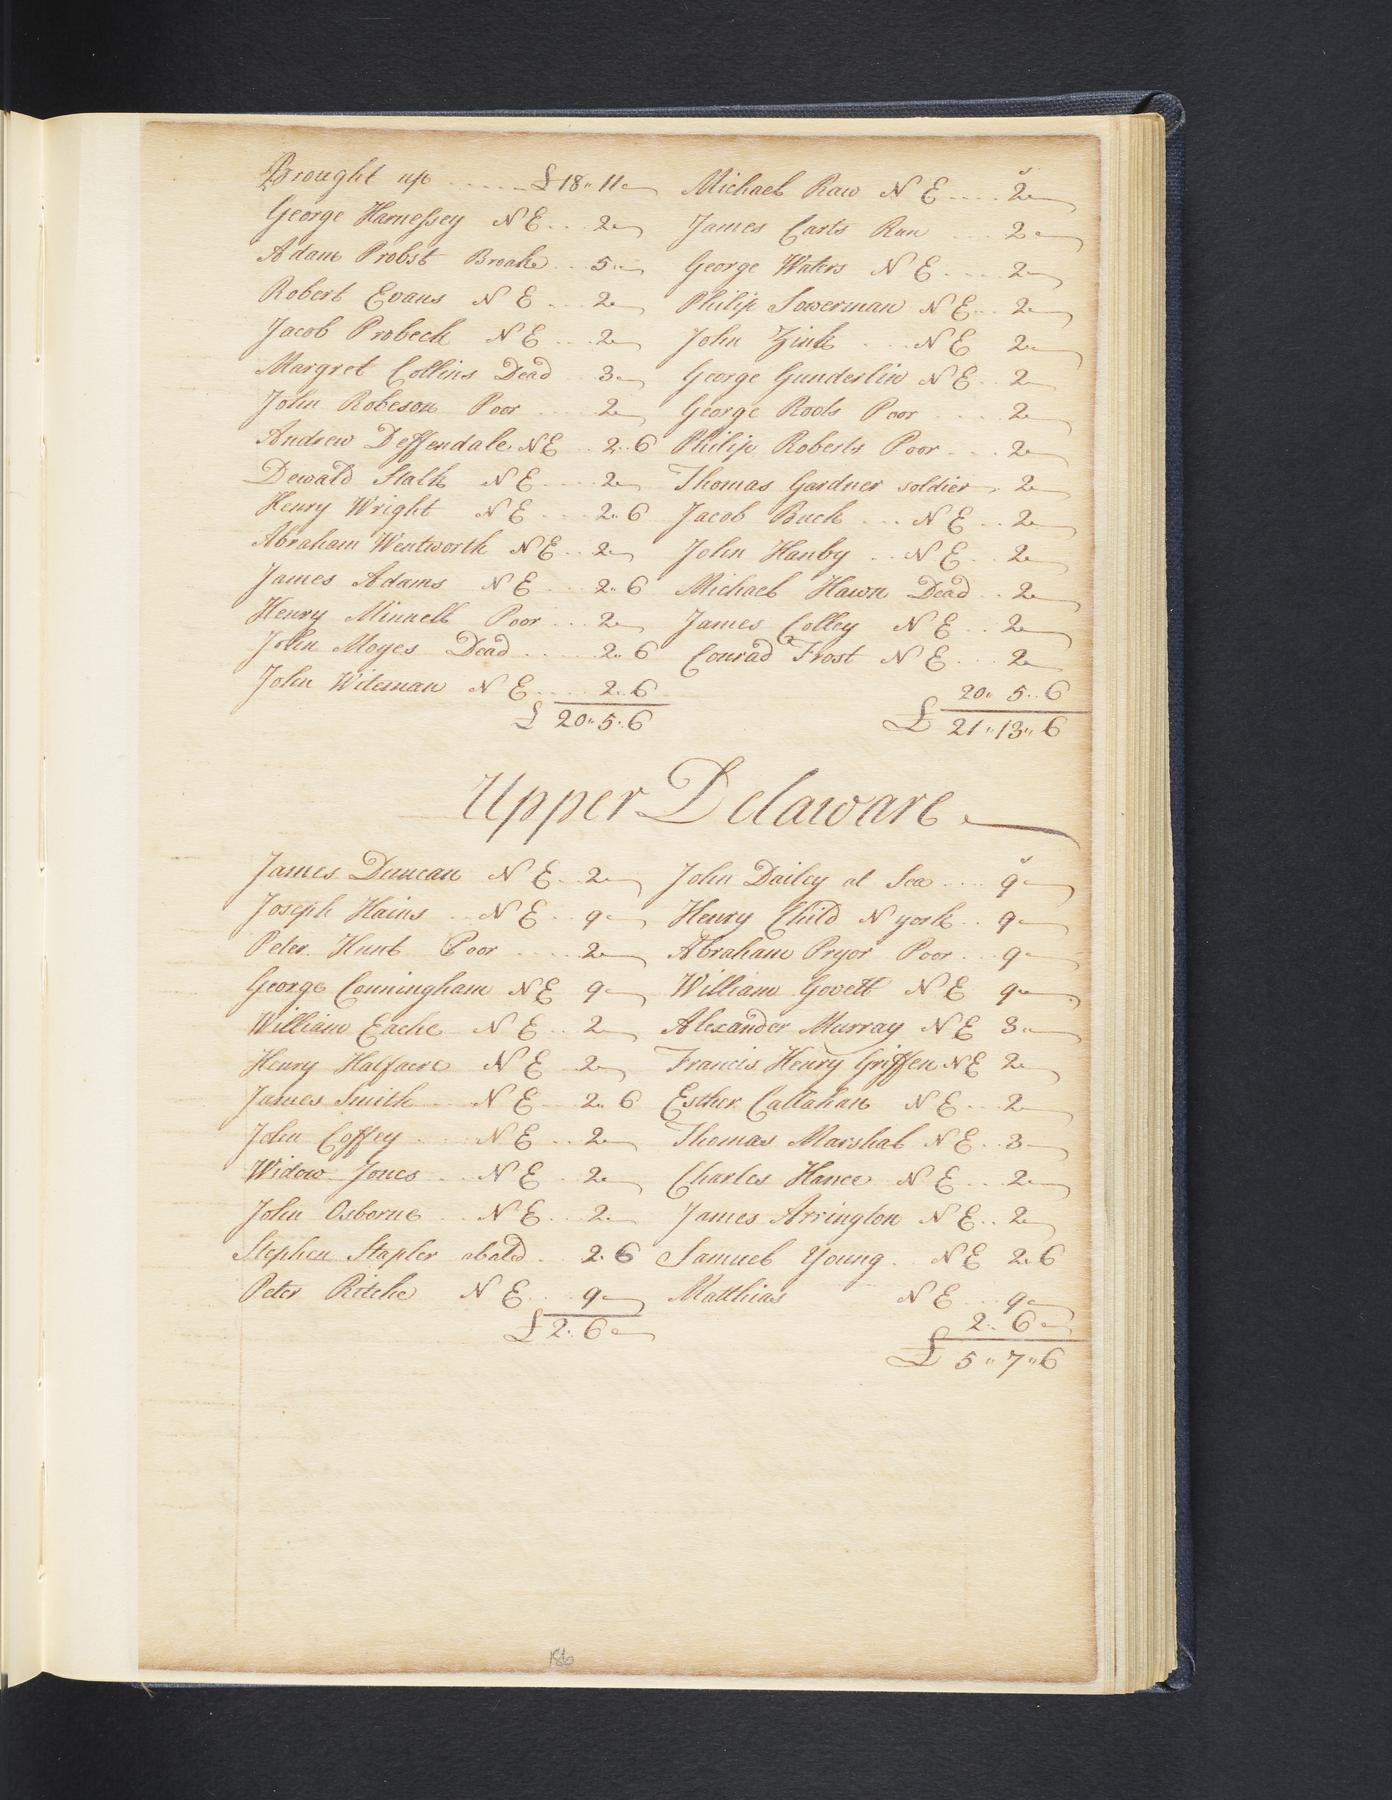 Brought up ...... £18..11..—
George Harnessey N E ... 2..—
Adam Probst Broake .. 5..—
Robert Evans N E ... 2..—
Jacob Probeck N E ... 2..—
Margret Collins Dead .. 3..—
John Robeson Poor .... 2..—
Andrew Deffendale N E .. 2..6
Dewald Stalk N E ..... 2..—
Henry Wright N E .... 2..6
Abraham Wentworth N E .. 2..—
James Adams N E .... 2..6
Henry Minnell Poor ... 2..—
John Moyes Dead ..... 2..6
John Wileman N E ..... 2..6
£ 20..5..6
Michael Raw N E .... 2..—
James Carls Run .... 2..—
George Waters N E .... 2..—
Philip Sowerman N E .. 2..—
John Zink .... N E 2..—
George Gunderlin N E .. 2..—
George Rools Poor ... 2..—
Philip Roberts Poor ... 2..—
Thomas Gardner soldier .. 2..—
Jacob Buck ... N E .. 2..—
John Hanby .. N E .. 2..—
Michael Hawn Dead .. 2..—
James Colley N E ... 2..—
Conrad Frost N E ... 2..—
20..5..6
£ 21..13..6
Upper Delaware
James Duncan N E .. 2..—
Joseph Hains .. N E .. 9..—
Peter Hunt Poor ..... 2..—
George Conningham N E 9..—
William Eache N E .. 2..—
Henry Halfacre N E 2..—
James Smith N E 2..6
John Coffey .... N E .. 2..—
Widow Jones .. N E .. 2..—
John Osborne .. N E .. 2..—
Stephen Stapler abated .. 2..6
Peter Ritche N E ... 9..—
£ 2..6..—
John Dailey at Sea .... 9..—
Henry Child N york .. 9..—
Abraham Pryor Poor ... 9..—
William Govett N E 9..—
Alexander Murray N E 3..—
Francis Henry Griffen N E 2..—
Esther Callahan N E ... 2..—
Thomas Marshal N E .. 3..—
Charles Hance N E ... 2..—
James Arrington N E .. 2..—
Samuel Young .. N E 2..6
Matthias N E ... 9..—
2..6..—
£ 5..7..6